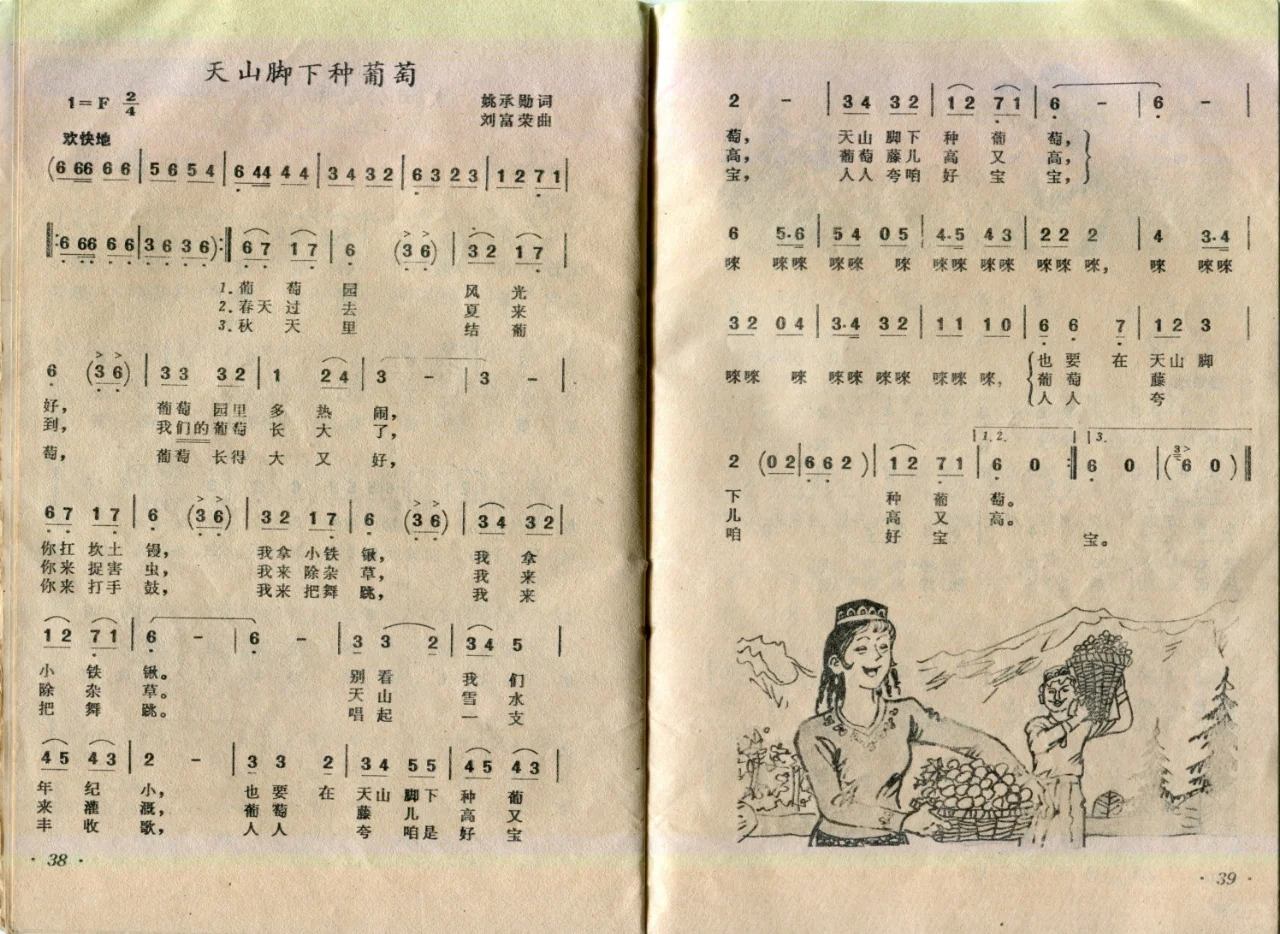 天山脚下种葡萄
1=F 2/4
姚承勋词
刘富荣曲
欢快地
(6 66 6 6 | 5 6 5 4 | 6 44 4 4 | 3 4 3 2 | 6 3 2 3 | 1 2 7 1 |
‖: 6 66 6 6 | 3 6 3 6 ) :‖ 6 7 1 7 | 6 (3 6) | 3 2 1 7 |
1.葡 萄 园 风 光
2.春天 过 去 夏 来
3.秋 天 里 结 葡
6 (3 6) | 3 3 3 2 | 1 2 4 | 3 - | 3 - |
好, 葡萄 园里 多 热 闹,
到, 我们的葡萄 长 大 了,
萄, 葡萄 长得 大 又 好,
6 7 1 7 | 6 (3 6) | 3 2 1 7 | 6 (3 6) | 3 4 3 2 |
你扛 坎土 镘, 我拿 小铁 锹, 我 拿
你来 捉害 虫, 我来 除杂 草, 我 来
你来 打手 鼓, 我来 把舞 跳, 我 来
1 2 7 1 | 6 - | 6 - | 3 3 2 | 3 4 5 |
小 铁 锹。 别 看 我 们
除 杂 草。 天 山 雪 水
把 舞 跳。 唱 起 一 支
4 5 4 3 | 2 - | 3 3 2 | 3 4 5 5 | 4 5 4 3 |
年 纪 小, 也 要 在 天山 脚下 种 葡
来 灌 溉, 葡 萄 藤 儿 高 又
丰 收 歌, 人 人 夸 咱是 好 宝
· 38 ·
2 - | 3 4 3 2 | 1 2 7 1 | 6 - | 6 - |
萄, 天山 脚下 种 葡 萄,
高, 葡萄 藤儿 高 又 高,
宝, 人人 夸咱 好 宝 宝,
6 5·6 | 5 4 0 5 | 4·5 4 3 | 2 2 2 | 4 3·4 |
唻 唻唻 唻唻 唻 唻唻 唻唻 唻唻 唻, 唻 唻唻
3 2 0 4 | 3·4 3 2 | 1 1 1 0 | 6 6 7 | 1 2 3 |
也 要 在 天山 脚
唻唻 唻 唻唻 唻唻 唻唻 唻, 葡 萄 藤
人 人 夸
1.2. 3.
2 (0 2 | 6 6 2) | 1 2 7 1 | 6 0 :‖ 6 0 | (3 6 0) ‖
下 种 葡 萄。
儿 高 又 高。
咱 好 宝 宝。
· 39 ·